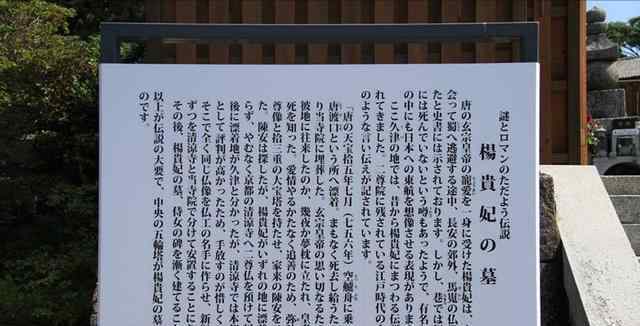 謎とロマンのただよう伝説
楊貴妃の墓
唐の玄宗皇帝の寵愛を一身に受けた楊貴妃は、
会って蜀へ逃避する途中、長安の郊外、馬嵬の仏
たと史書には示されております。しかし、巷では
には死んでいないという噂もあったようで、有名
の中にも日本への東航を想像させる表現があり
ここ久津の地では、昔から楊貴妃にまつわる伝
れてきました。二尊院に残されている江戸時代の
のような言い伝えが記されています。
「唐の天宝拾五年七月(七五六年)空艫舟に乗
唐渡口という所へ漂着、まもなく死去し給うた
り当寺院に埋葬した。玄宗皇帝の思い切なるた
彼地に往来したのか、幾夜か夢枕に立たれ、皇
死を知った。愛情やるかたなく追善のため、弥
尊像と拾三重の大宝塔を持たせ、家来の陳安を
た。陳安は探したが、楊貴妃がいずれの地に漂
らず、やむなく京都の清涼寺へ二尊仏を預けて
後に漂着地が久津と分かったが、清涼寺では本
として評判が高かったため、手放すのが惜しく
そこで全く同じ仏像を仏工の名手に作らせ、新
ずつを清涼寺と当寺院で分けて安置することに
その後、楊貴妃の墓、侍女の碑を漸く建てるこ
以上が伝説の大要で、中央の五輪塔が楊貴妃の墓
のです。